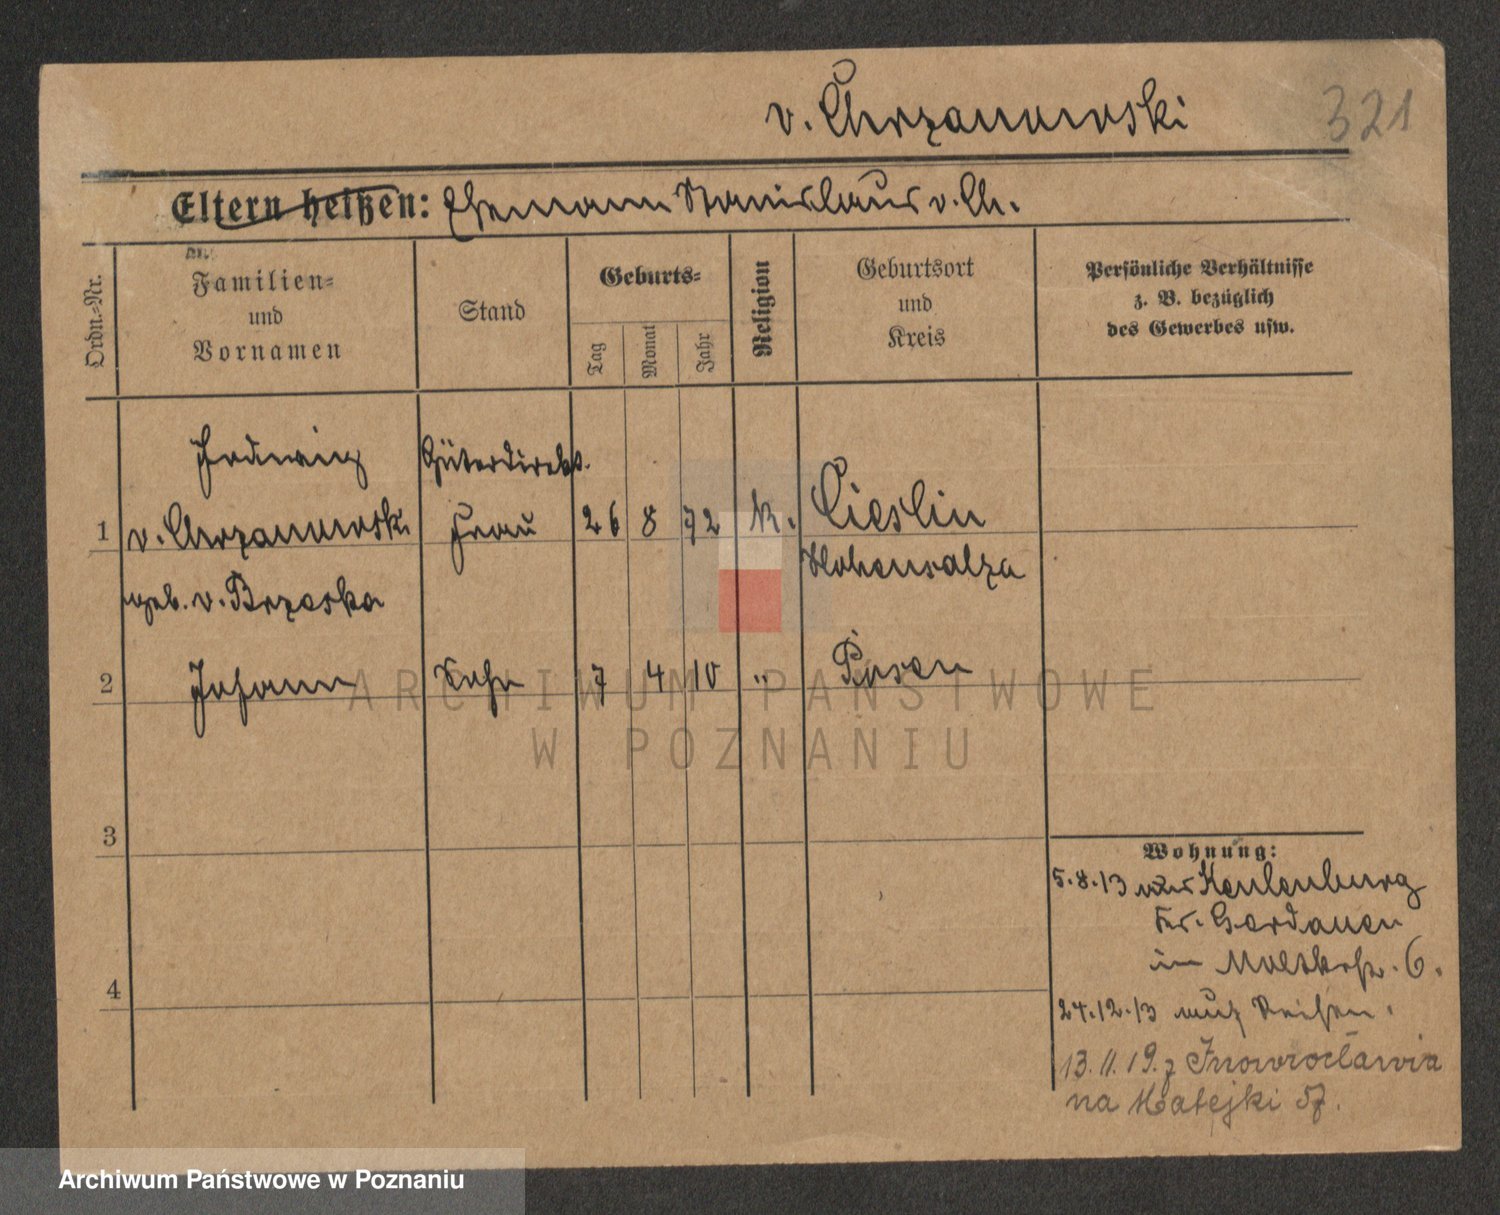 v. Chrzanowski
321
Eltern heißen: Ehemann Stanislaus v. Ch.
Ordn.-Nr.
Familien-
und
Vornamen
Stand
Geburts-
Tag
Monat
Jahr
Religion
Geburtsort
und
Kreis
Persönliche Verhältnisse
z. B. bezüglich
des Gewerbes usw.
Hedwig
Güterdirekt.
1 v. Chrzanowski Frau 26 8 72 k. Cieslin
Hohensalza
geb. v. Brzeska
2 Johann Sohn 7 4 10 " Posen
ARCHIWUM PAŃSTWOWE
W POZNANIU
3
4
Wohnung:
5.8.13 Kr. Gerdauen
in Moltkestr. 6.
24.12.13 nach Reisen.
13.11.19. z Inowrocławia
na Matejki 57.
Archiwum Państwowe w Poznaniu